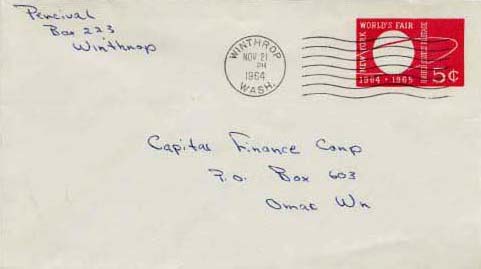 Percival
Box 223
Winthrop
WINTHROP
NOV 21
PM
1964
WASH.
WORLD'S FAIR
NEW YORK
1964 · 1965
5¢
Capital Finance Corp
P.O. Box 603
Omak Wn